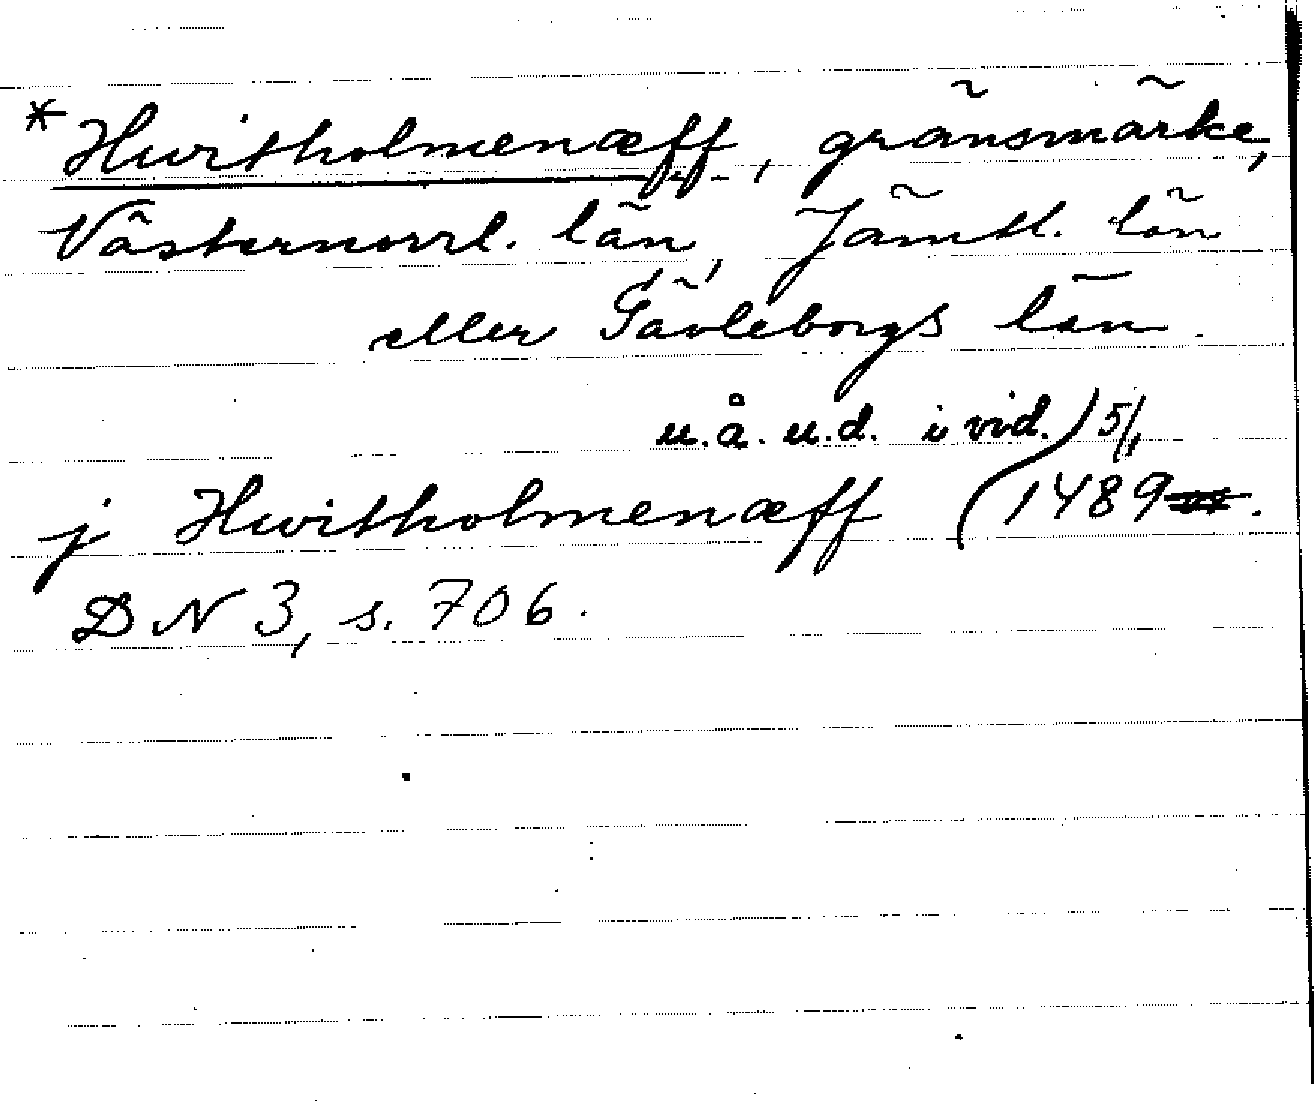 * Hwitholmenæff, gränsmärke,
Västernorrl. län, Jämtl. län
eller Gävleborgs län.
u.å. u.d. i vid. 5/1
j Hwitholmenæff (1489.
DN 3, s. 706.